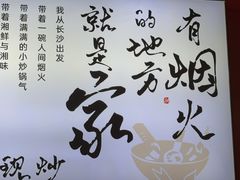 有烟火
的地方
就是家
我从长沙出发
带着一碗人间烟火
带着满满的小炒锅气
带着湘鲜与湘味